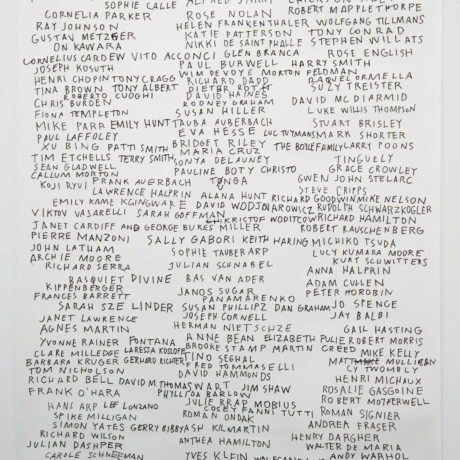 SOPHIE CALLE ALFRED JARRY
CORNELIA PARKER ROSE NOLAN ROBERT MAPPLETHORPE
RAY JOHNSON HELEN FRANKENTHALER WOLFGANG TILLMANS
GUSTAV METZGER KATIE PATERSON TONY CONRAD
ON KAWARA NIKKI DE SAINT PHALLE STEPHEN WILLATS
CORNELIUS CARDEW VITO ACCONCI GLEN BRANCA ROSE ENGLISH
JOSEPH KOSUTH PAUL BURWELL HARRY SMITH
HENRI CHOPIN TONY CRAGG WIM DEVOYE MORTON FELDMAN
TINA BROWN TONY ALBERT RICHARD DADD RAQUEL ORMELLA
ROBERTO CUOGHI DIETER ROTH SUZY TREISTER
CHRIS BURDEN DAVID HAINES DAVID MCDIARMID
FIONA TEMPLETON RODNEY GRAHAM LUKE WILLIS THOMPSON
SUSAN HILLER
MIKE PARR EMILY HUNT TAUBA AUERBACH STUART BRISLEY
PAUL LAFFOLEY EVA HESSE LUC TUYMANS MARK SHORTER
XU BING PATTI SMITH BRIDGET RILEY THE BOYLE FAMILY LARRY POONS
TIM ETCHELLS TERRY SMITH MARIA CRUZ TINGUELY
SEAN GLADWELL SONYA DELAUNEY GRACE CROWLEY
CALLUM MORTON PAULINE BOTY CHRISTO GWEN JOHN STELARC
KOJI RYUI FRANK AUERBACH TONGA STEVE CRIPPS
LAWRENCE HALPRIN ALANA HUNT RICHARD GOODWIN MIKE NELSON
EMILY KAME KGINGWARE DAVID WOJNAROWICZ RUDOLPH SCHWARZKOGLER
VIKTOV VASARELLI SARAH GOFFMAN CHRISTOF WODITCOW RICHARD HAMILTON
JANET CARDIFF AND GEORGE BURES MILLER ROBERT RAUSCHENBERG
PIERRE MANZONI SALLY GABORI KEITH HARING MICHIKO TSUDA
JOHN LATHAM SOPHIE TAUBERARP LUCY KUMARA MOORE
ARCHIE MOORE KURT SCHWITTERS
RICHARD SERRA JULIAN SCHNABEL ANNA HALPRIN
BASQUIET DIVINE BAS VAN ADER ADAM CULLEN
KIPPENBERGER JANOS SUGAR PETER MOROBIN
FRANCES BARRETT PANAMARENKO
SARAH SZE LINDER SUSAN PHILLIPZ DAN GRAHAM JO SPENCE
JANET LAWRENCE JOSEPH CORNELL JAY BALBI
AGNES MARTIN HERMAN NIETSCHZE GAIL HASTING
YVONNE RAINER FONTANA ANNE BEAN ELIZABETH PULIE ROBERT MORRIS
CLARE MILLEDGE LARESIA KOSLOFF BROOKE STAMP MARTIN CREED MIKE KELLY
BARBARA KRUGER GERHARD RICHTER TINO SEGHAL MULLICAN
TOM NICHOLSON FRED TOMMASELLI CY TWOMBLY
RICHARD BELL DAVID M. THOMAS DAVID HAMMONDS HENRI MICHAUX
SWART JIM SHAW
FRANK O'HARA PHYLLIDA BARLOW ROSALIE GASGOINE
HANS ARP LEE LONZANO JULIE RRAP MOBIUS ROBERT MOTHERWELL
SPIKE MILLIGAN COSEY FANNI TUTTI ROMAN SIGNER
SIMON YATES GERRY BIBBY ASH KILMARTIN ROMAN ONDAK ANDREA FRASER
RICHARD WILSON HENRY DARGHER
JULIAN DASHPER ANTHEA HAMILTON WALTER DE MARIA
CAROLE SCHNEEMAN YVES KLEIN ANDY WARHOL